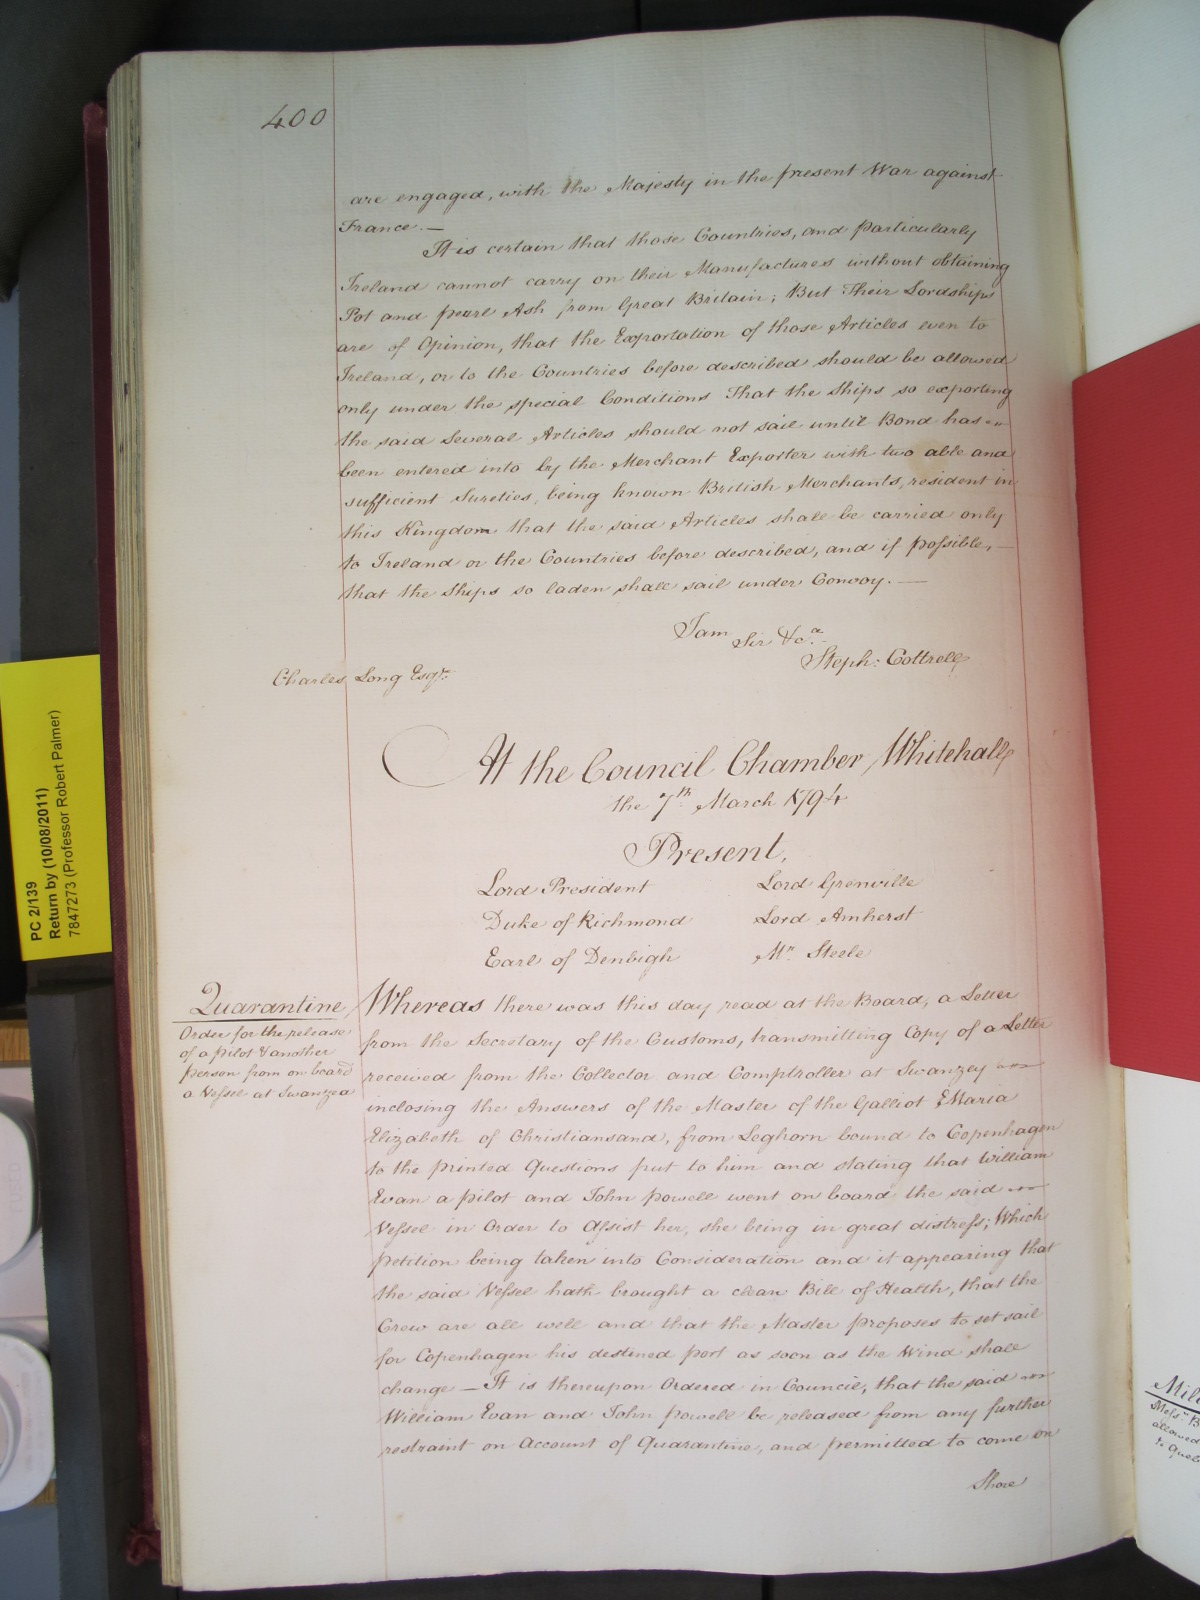 400
are engaged, with the Majesty in the present War against
France. —
It is certain that those Countries, and particularly
Ireland cannot carry on their Manufactures without obtaining
Pot and pearl Ash from Great Britain; But Their Lordships
are of Opinion, that the Exportation of those Articles even to
Ireland, or to the Countries before described should be allowed
only under the special Conditions That the Ships so exporting
the said Several Articles should not sail until Bond has
been entered into by the Merchant Exporter with two able and
sufficient Sureties, being known British Merchants, resident in
this Kingdom that the said Articles shall be carried only
to Ireland or the Countries before described, and if possible, —
that the Ships so laden shall sail under Convoy. —
I am
Sir &c.a
Steph: Cottrell
Charles Long Esqr.
At the Council Chamber Whitehall
the 7th March 1794
Present,
Lord President Lord Grenville
Duke of Richmond Lord Amherst
Earl of Denbigh Mr. Steele
Quarantine
Order for the release
of a pilot & another
person from on board
a Vessel at Swanzea
Whereas there was this day read at the Board, a Letter
from the Secretary of the Customs, transmitting Copy of a Letter
received from the Collector and Comptroller at Swanzey
inclosing the Answers of the Master of the Galliot Maria
Elizabeth of Christiansand, from Leghorn bound to Copenhagen
to the printed Questions put to him and stating that William
Evan a pilot and John Powell went on board the said
Vessel in Order to Assist her, she being in great distress; Which
petition being taken into Consideration and it appearing that
the said Vessel hath brought a clean Bill of Health, that the
Crew are all well and that the Master proposes to set sail
for Copenhagen his destined port as soon as the Wind shall
change — It is thereupon Ordered in Council, that the said
William Evan and John Powell be released from any further
restraint on Account of Quarantine, and permitted to come on
Shore
PC 2/139
Return by (10/08/2011)
7847273 (Professor Robert Palmer)
allowed